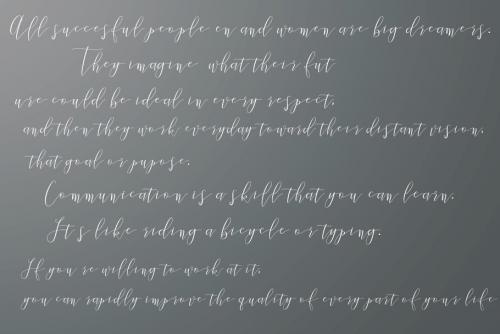 All succesful people en and women are big dreamers.
They imagine what their fut
ure could be ideal in every respect,
and then they work everyday toward their distant vision,
that goal or pupose.
Communication is a skill that you can learn.
It s like riding a bicycle or typing.
If you re willing to work at it,
you can rapidly improve the quality of every part of your life